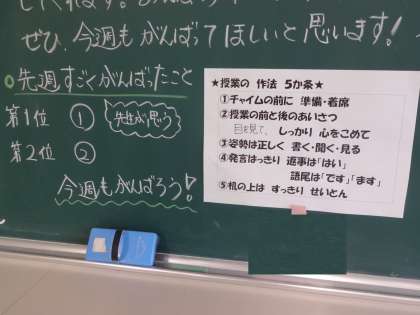 してくれます。
ぜひ、今週も がんばって ほしいと 思います!
○先週すごくがんばったこと
第1位 ① 先生が思う
第2位 ②
今週もがんばろう!
★授業の 作法 5か条★
①チャイムの前に 準備・着席
②授業の前と後のあいさつ
目を見て、しっかり 心をこめて
③姿勢は正しく 書く・聞く・見る
④発言はっきり 返事は「はい」
語尾は「です」「ます」
⑤机の上は すっきり せいとん